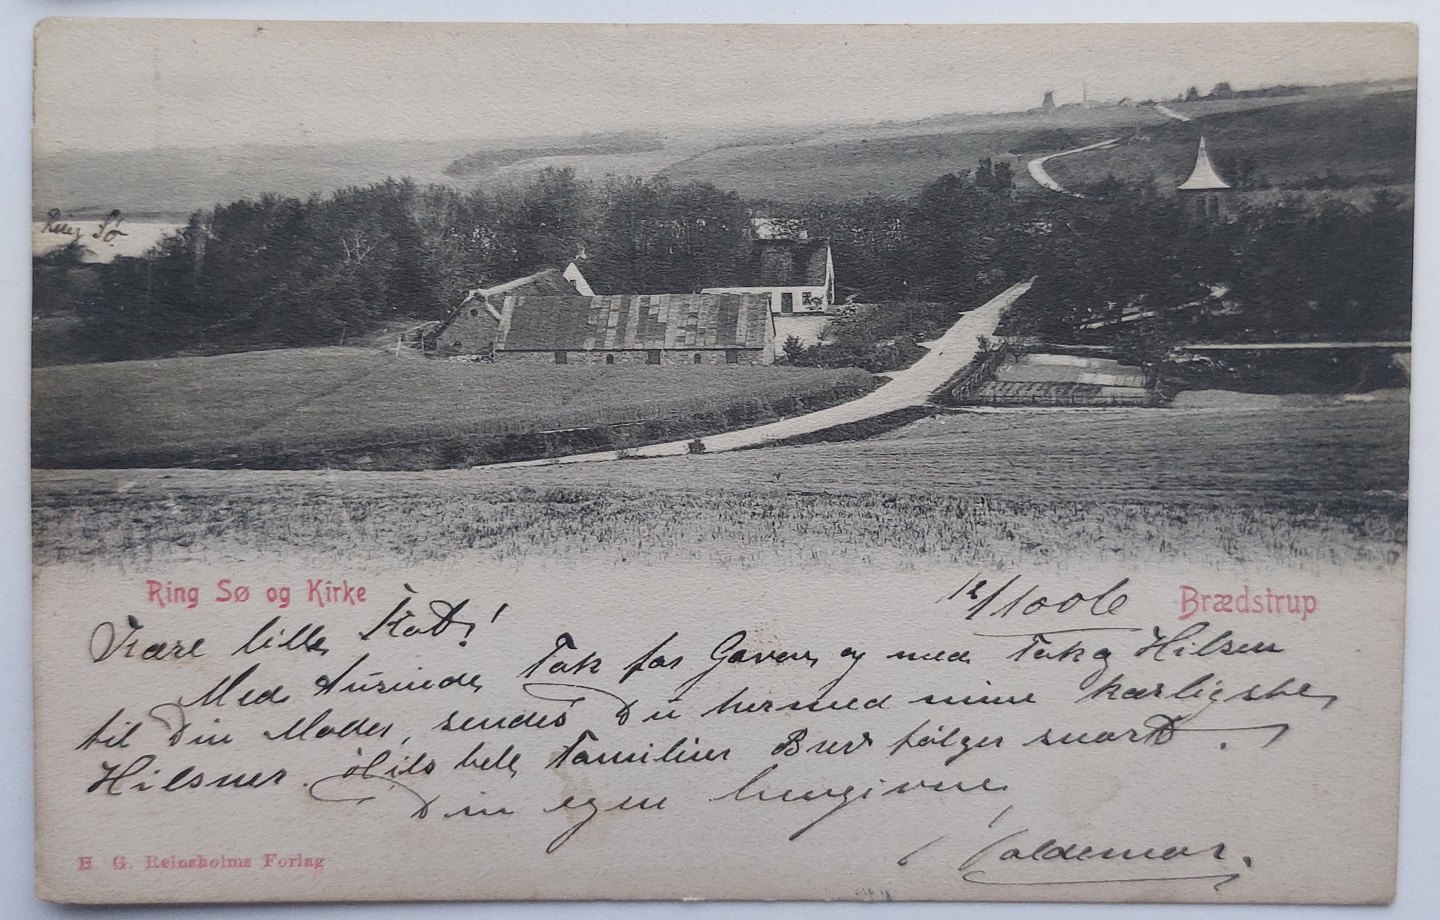 Ring Sø
Ring Sø og Kirke
12/10 06
Brædstrup
Kære lille Kat!
Med tusinde Tak for Gaven og med Tak og Hilsen
til Din Moder, sendes Du hermed mine kærligste
Hilsner. Hils hele Familien Brev følger snart.
Din egen hengivne
Valdemar.
H. G. Reinsholms Forlag